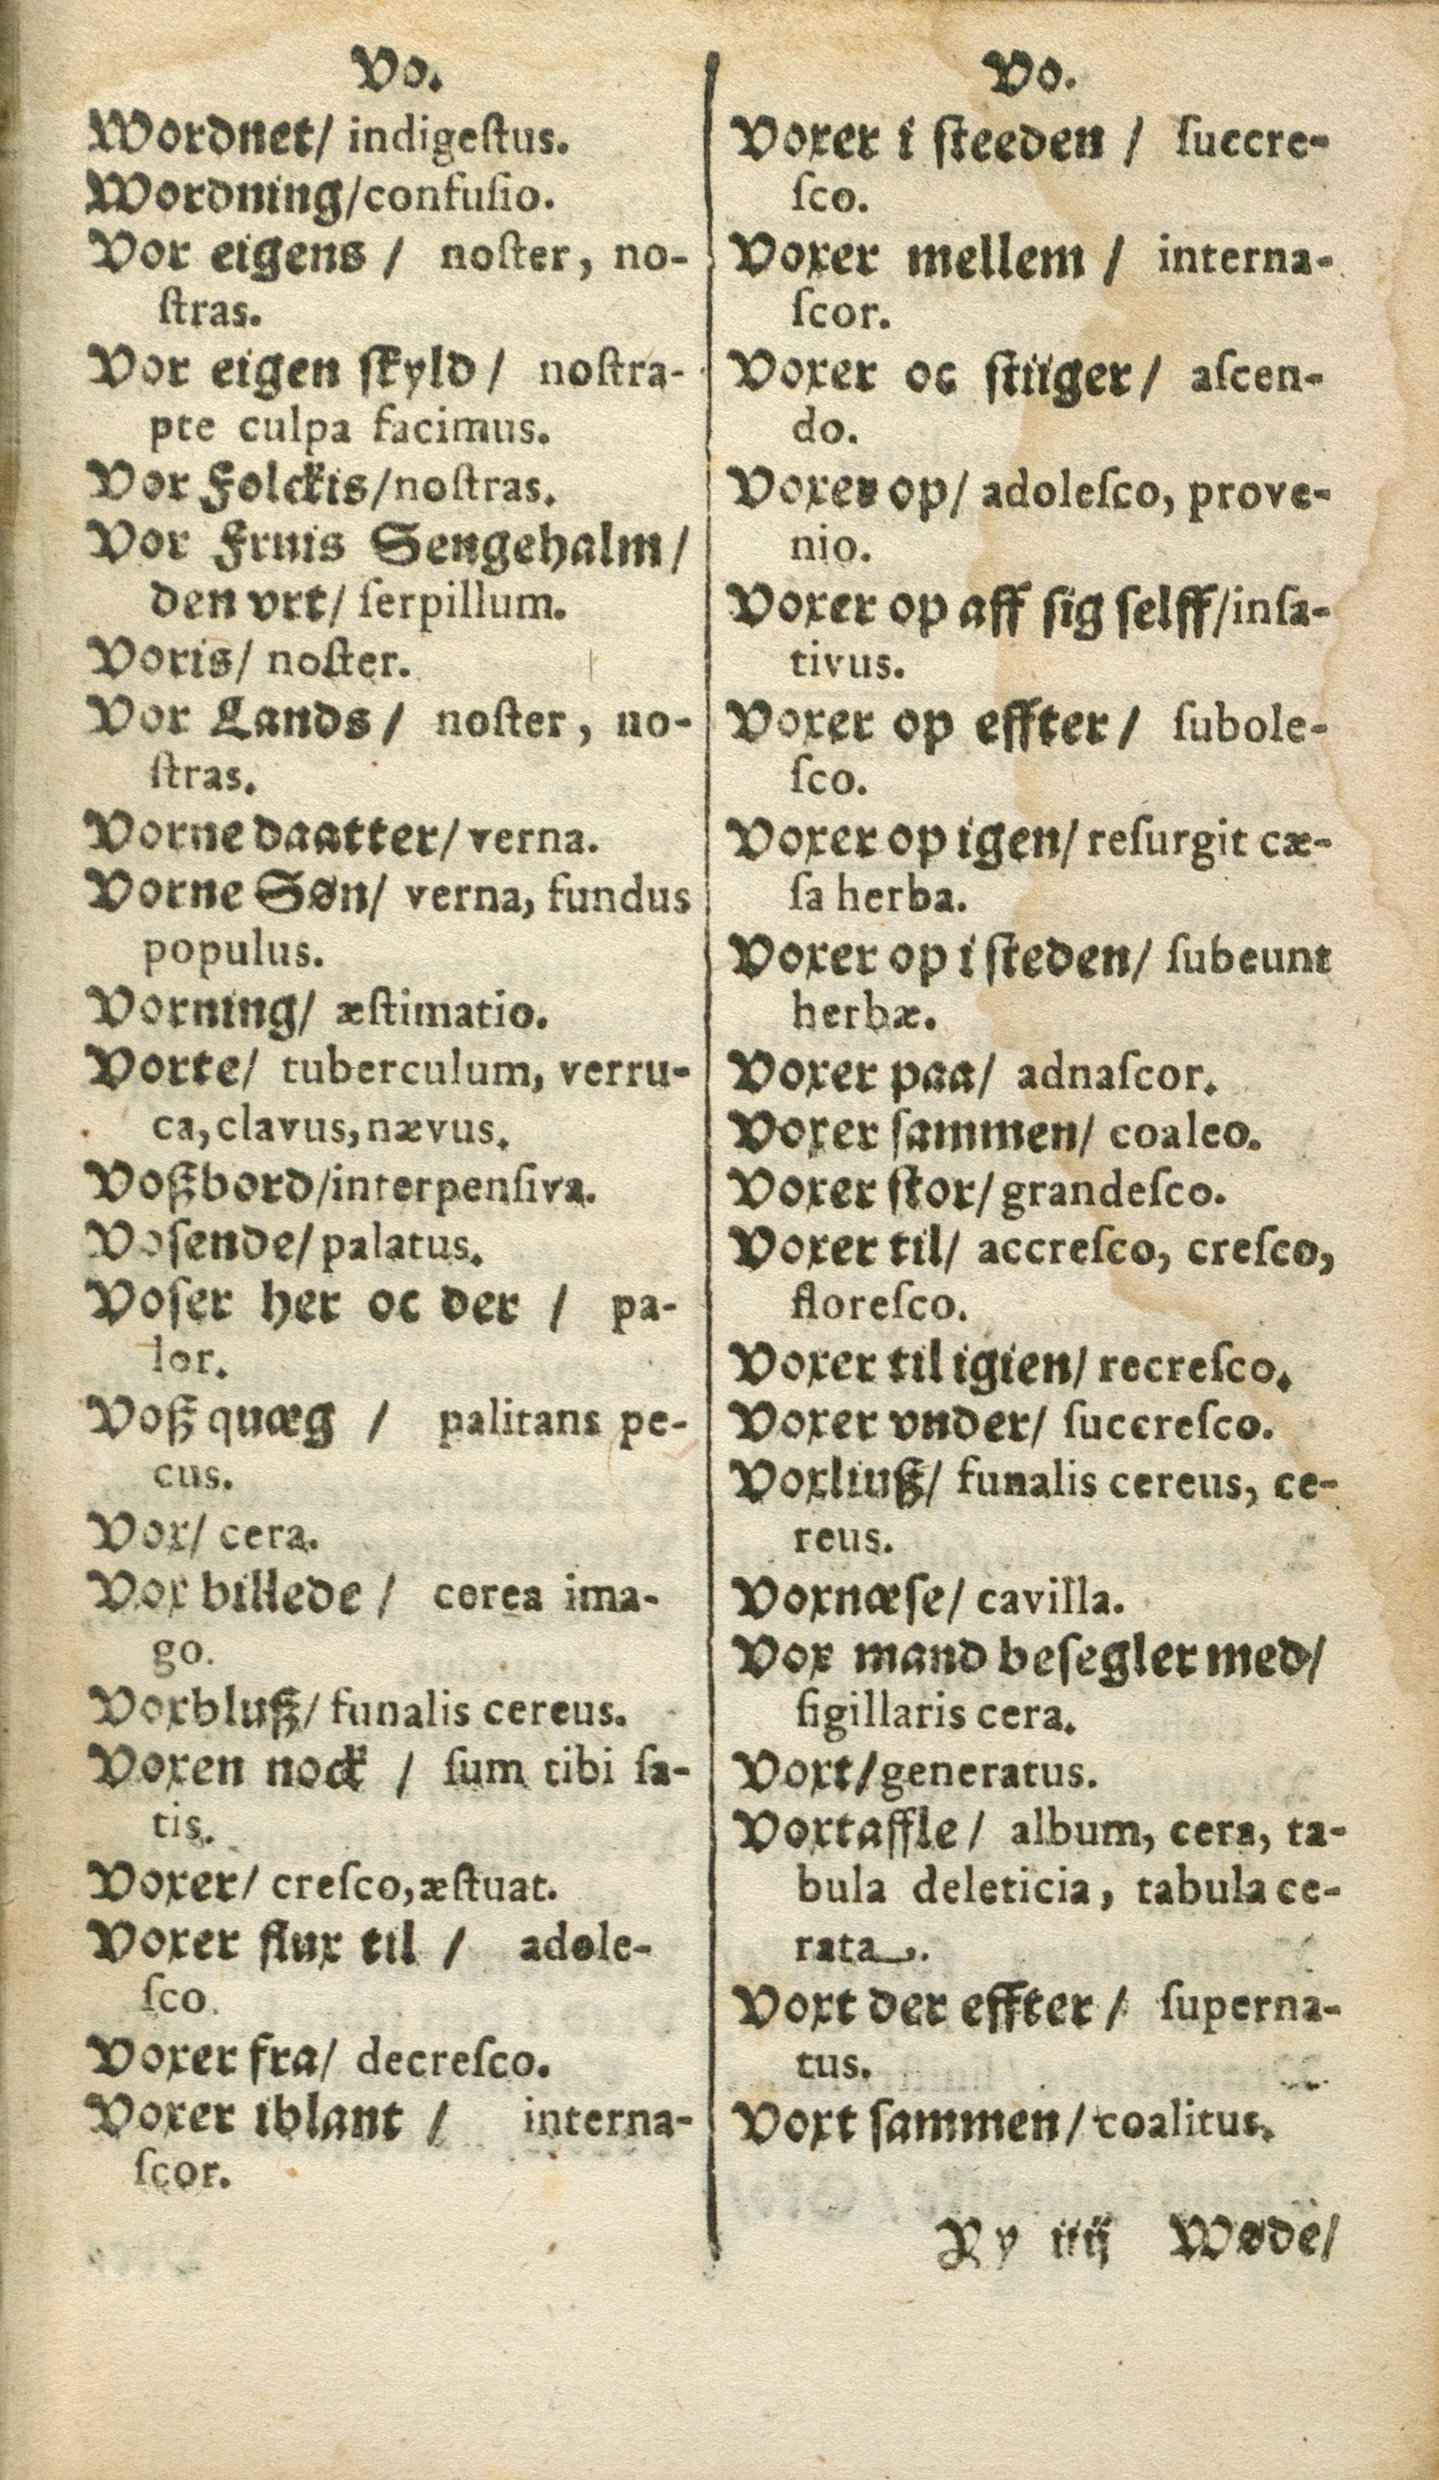 Vo.
Wordnet/ indigeſtus.
Wordning/confuſio.
Vor eigens / noſter, no-
ſtras.
Vor eigen ſkyld / noſtra-
pte culpa facimus.
Vor Folckis/noſtras.
Vor Fruis Sengehalm/
den vrt/ ſerpillum.
Voris/ noſter.
Vor Lands / noſter, no-
ſtras.
Vorne daatter/ verna.
Vorne Søn/ verna, fundus
populus.
Vorning/ æſtimatio.
Vorte/ tuberculum, verru-
ca, clavus, nævus.
Voßbord/interpenſiva.
Voſende/ palatus.
Voſer her oc der / pa-
lor.
Voß quæg / palitans pe-
cus.
Vox/ cera.
Vox billede / cerea ima-
go.
Voxbluß/ funalis cereus.
Voxen nock / ſum tibi ſa-
tis.
Voxer/ creſco, æſtuat.
Voxer flux til / adole-
ſco.
Voxer fra/ decreſco.
Voxer iblant / interna-
ſcor.
Vo.
Voxer i ſteeden / ſuccre-
ſco.
Voxer mellem / interna-
ſcor.
Voxer oc ſtiiger/ aſcen-
do.
Voxer op/ adoleſco, prove-
nio.
Voxer op aff ſig ſelff/inſa-
tivus.
Voxer op effter / ſubole-
ſco.
Voxer op igen/ reſurgit cæ-
ſa herba.
Voxer op i ſteden/ ſubeunt
herbæ.
Voxer paa/ adnaſcor.
Voxer ſammen/ coaleo.
Voxer ſtor/ grandeſco.
Voxer til/ accreſco, creſco,
floreſco.
Voxer til igien/ recreſco.
Voxer vnder/ ſuccreſco.
Voxliuß/ funalis cereus, ce-
reus.
Voxnæſe/ cavilla.
Vox mand beſegler med/
ſigillaris cera.
Voxt/generatus.
Voxtaffle / album, cera, ta-
bula deleticia, tabula ce-
rata.
Voxt der effter / ſuperna-
tus.
Voxt ſammen/ coalitus.
Yy iiij Wøde/